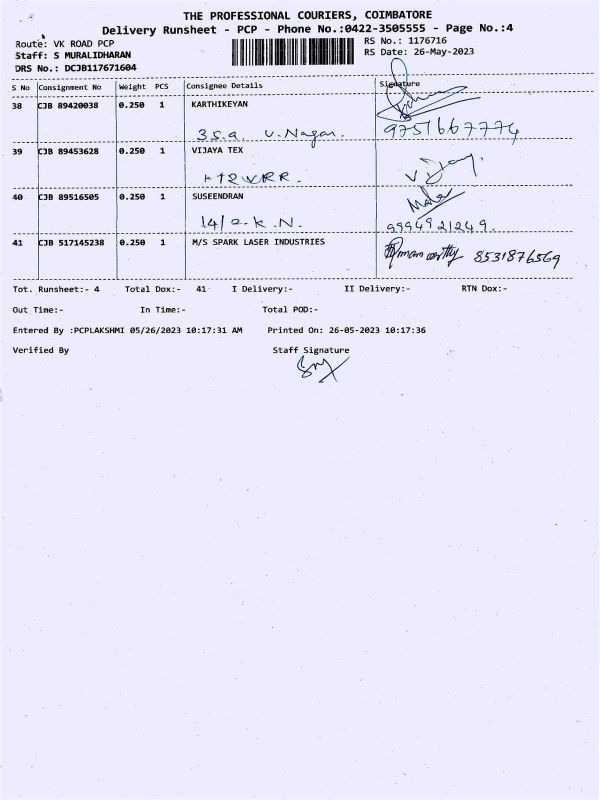 THE PROFESSIONAL COURIERS, COIMBATORE
Delivery Runsheet - PCP - Phone No.:0422-3505555 - Page No.:4
Route: VK ROAD PCP
RS No.: 1176716
Staff: S MURALIDHARAN
RS Date: 26-May-2023
DRS No.: DCJB117671604
S No Consignment No Weight PCS Consignee Details Signature
38 CJB 89420038 0.250 1 KARTHIKEYAN
3 s.a v.Nagar. 9751667774
39 CJB 89453628 0.250 1 VIJAYA TEX
V.R.R. Vijay.
40 CJB 89516505 0.250 1 SUSEENDRAN
Mala
14/2-K.N. 9994921249.
41 CJB 517145238 0.250 1 M/S SPARK LASER INDUSTRIES
8531876569
Tot. Runsheet:- 4 Total Dox:- 41 I Delivery:- II Delivery:- RTN Dox:-
Out Time:- In Time:- Total POD:-
Entered By :PCPLAKSHMI 05/26/2023 10:17:31 AM Printed On: 26-05-2023 10:17:36
Verified By Staff Signature